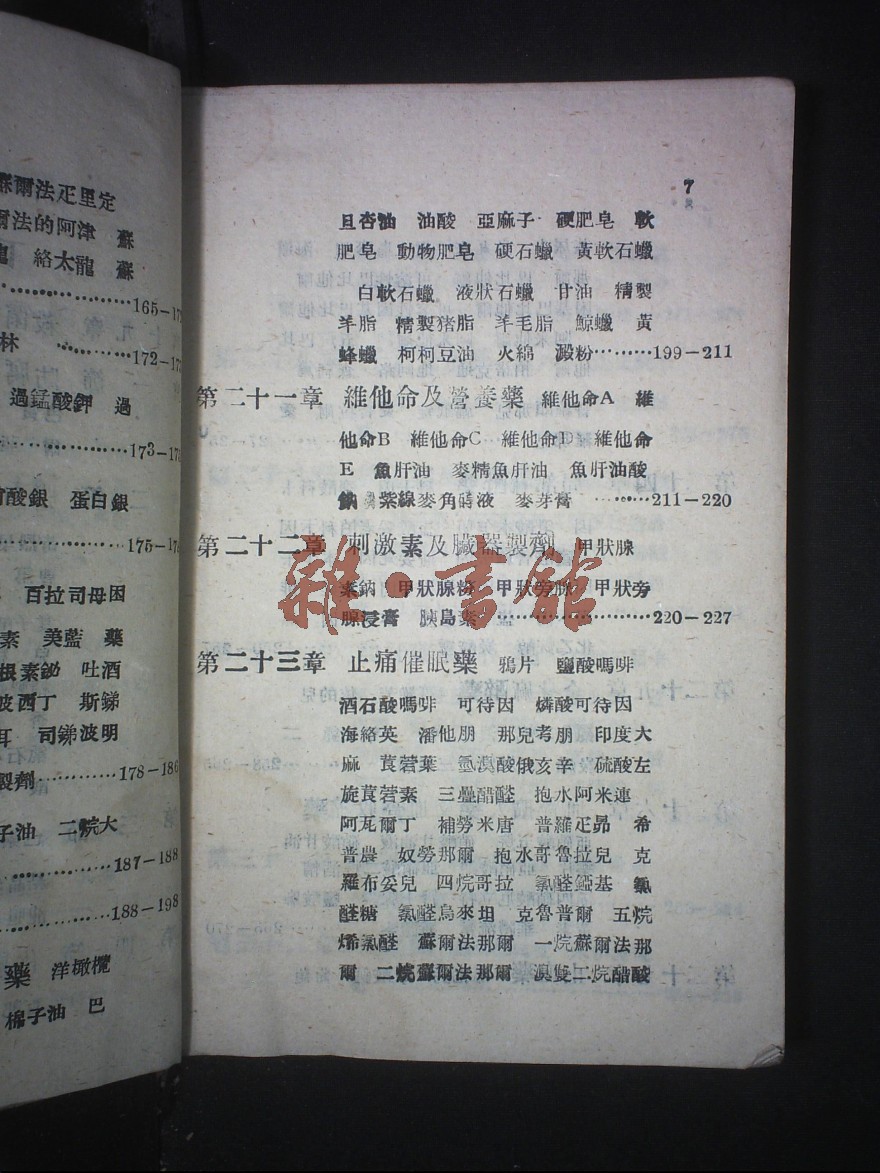 蘇爾法疋里定
爾法的阿津 蘇
絡太龍 蘇
165-17
林 172-17
過錳酸鉀 過
173-17
酸銀 蛋白銀
175-17
百拉司母因
素 美藍 藥
根素鈉 吐酒
波西丁 斯銻
耳 司銻波明
製劑 178-186
子油 二烷大
187-188
188-198
藥 洋橄欖
棉子油 巴
7
旦杏油 油酸 亞麻子 硬肥皂 軟
肥皂 動物肥皂 硬石蠟 黃軟石蠟
白軟石蠟 液狀石蠟 甘油 精製
羊脂 精製猪脂 羊毛脂 鯨蠟 黃
蜂蠟 柯柯豆油 火綿 澱粉………199-211
第二十一章 維他命及營養藥 維他命A 維
他命B 維他命C 維他命D 維他命
E 魚肝油 麥精魚肝油 魚肝油酸
鈉 紫線麥角碡液 麥芽膏 ………211-220
第二十二章 刺激素及臟器製劑 甲狀腺
素鈉 甲狀腺粉 甲狀旁腺 甲狀旁
腺浸膏 胰島素 ………220-227
雜·書館
第二十三章 止痛催眠藥 鴉片 鹽酸嗎啡
酒石酸嗎啡 可待因 燐酸可待因
海絡英 潘他朋 那兒考朋 印度大
麻 莨菪葉 氫溴酸俄亥辛 硫酸左
旋莨菪素 三疊醋醛 抱水阿米連
阿瓦爾丁 補勞米唐 普羅疋昂 希
普農 奴勞那爾 抱水哥魯拉兒 克
羅布妥兒 四烷哥拉 氯醛錏基 氯
醛糖 氯醛烏來坦 克魯普爾 五烷
烯氯醛 蘇爾法那爾 一烷蘇爾法那
爾 二烷蘇爾法那爾 溴雙二烷醋酸